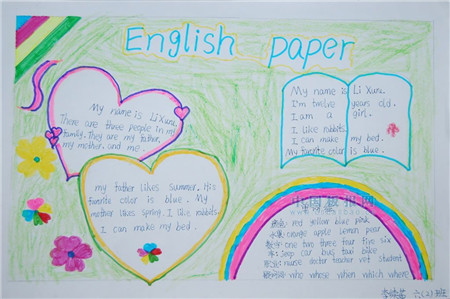 English paper
My name is Li Xuru.
There are three people in my
family. They are my father,
my mother, and me.
my father likes Summer. His
favorite color is blue. My
mother likes spring. I like rabbits.
I can make my bed.
My name is Li Xuru.
I'm twelve years old.
I am a girl.
I like rabbits.
I can make my bed.
My favorite color is blue.
red yellow blue pink
水果: orange apple lemon pear
数字: one two three four five six
car bus taxi bike
nurse doctor teacher vet student
who whose when which where
六(2)班